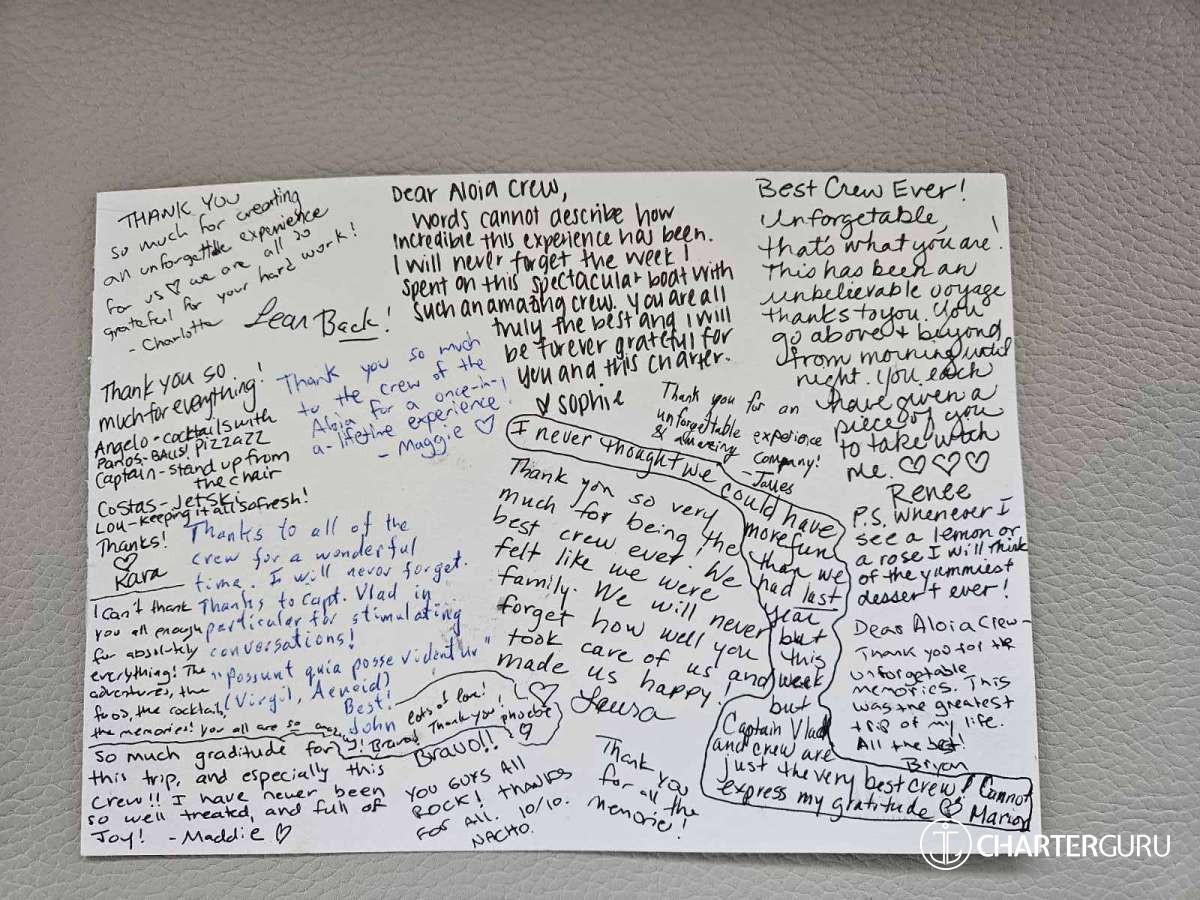 THANK YOU
so much for creating
an unforgettable experience
for us ♡ we are all so
grateful for your hard work!
- Charlotte
Lean Back!
Dear Aloia Crew,
words cannot describe how
incredible this experience has been.
I will never forget the week I
spent on this spectacular boat with
such an amazing crew. You are all
truly the best and I will
be forever grateful for
you and this charter.
♡ sophie
Best Crew Ever!
Unforgetable,
that's what you are!
This has been an
unbelievable voyage
thanks to you. You
go above + beyond
from morning until
night. You each
have given a
piece of you
to take with
me. ♡♡♡
Renee
P.S. Whenever I
see a lemon or
a rose I will think
of the yummiest
dessert ever!
Thank you so
much for everything!
Angelo - cocktails with
Panos - BALLS! PIZZAZZ
Captain - stand up from
the chair
Costas - Jetski
Lou - keeping it all so fresh!
Thanks!
♡
Kara
Thank you so much
to the crew of the
Aloia for a once-in-
a-lifetime experience!
- Maggie ♡
Thank you for an
unforgetable experience
& amazing company!
- James
I never thought we could have
more fun
than we
had last
year
but
this
week
but
Captain Vlad
and crew are
just the very best crew! Cannot
express my gratitude Marion
Thank you so very
much for being the
best crew ever. We
felt like we were
family. We will never
forget how well you
took care of us and
made us happy!
♡ Laura
Thanks to all of the
crew for a wonderful
time. I will never forget.
Thanks to Capt. Vlad in
particular for stimulating
conversations!
"Possunt quia posse videntur"
(Virgil, Aeneid)
Best!
John
I can't thank
you all enough
for absolutely
everything! The
adventures, the
food, the cocktails,
the memories! You all are so
lots of love!
Bravo! Thank you! phoebe
♡
Dear Aloia Crew-
Thank you for the
unforgetable
memories. This
was the greatest
trip of my life.
All the best!
Bryan
So much graditude for
this trip, and especially this
crew!! I have never been
so well treated, and full of
Joy! - Maddie ♡
Bravo!!
YOU GUYS All
ROCK! THANKS
FOR ALL. 10/10.
NACHO.
Thank
you
for all the
memories!
CHARTERGURU